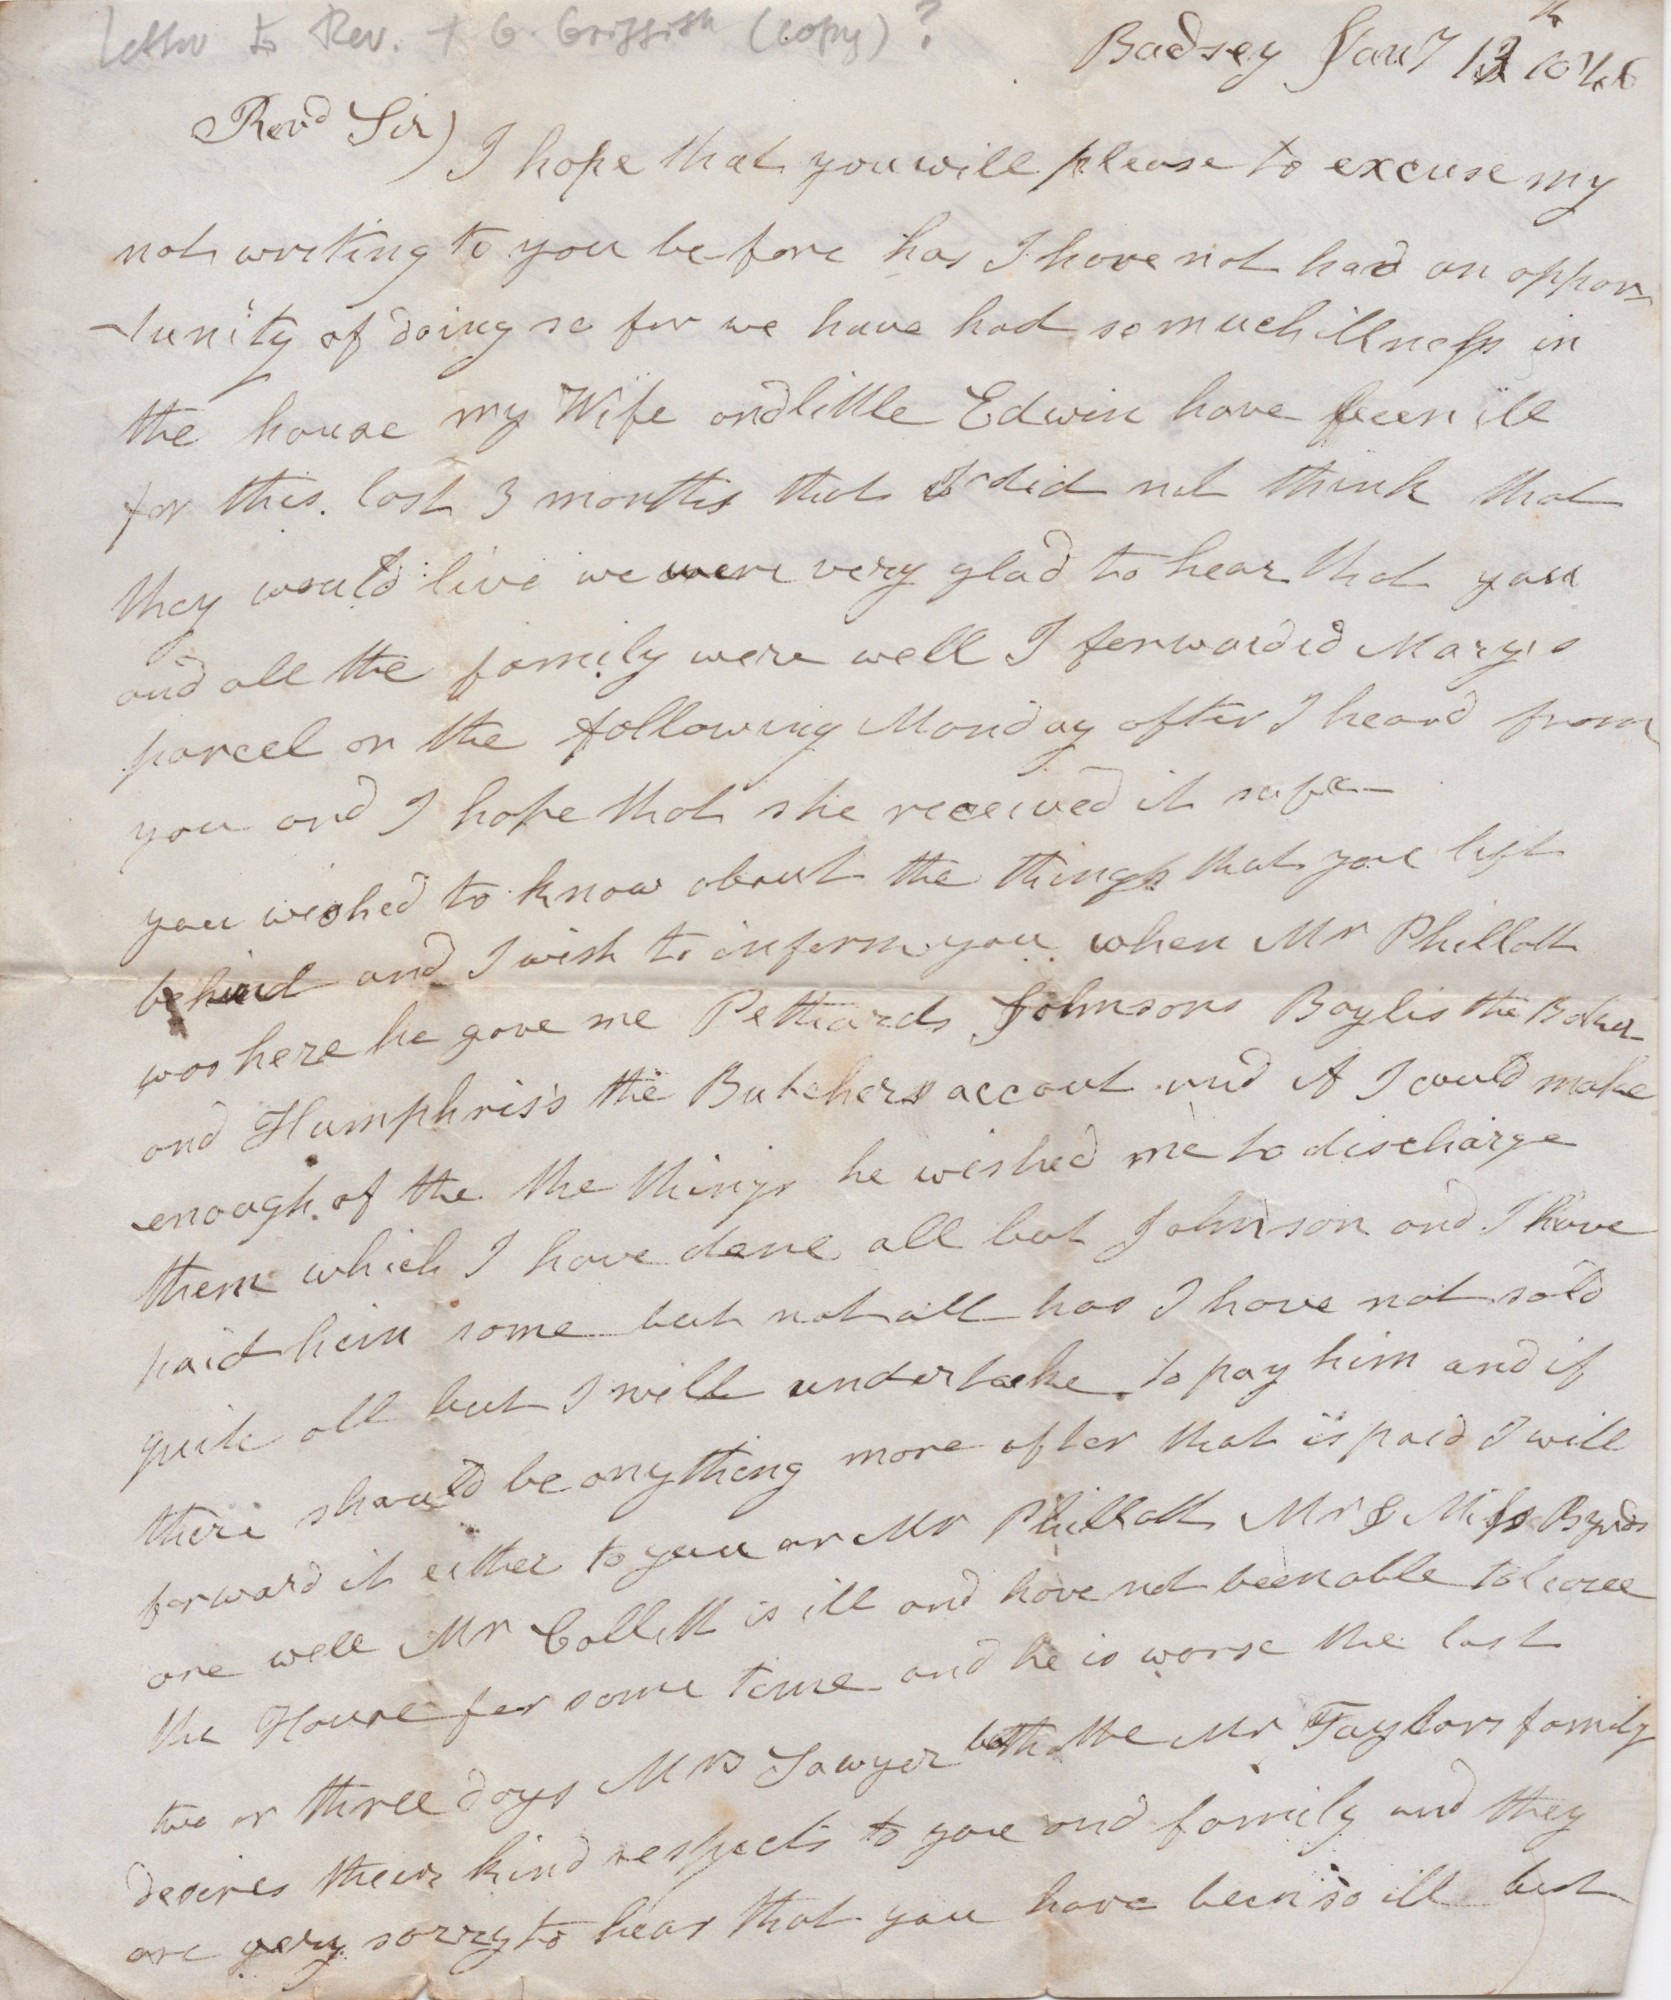 Letter to Rev. T G. Griffith (copy)?
Badsey Jany 13th 1846
Revd Sir) I hope that you will please to excuse my
not writing to you before has I have not had an oppor
-tunity of doing so for we have had so much illness in
the house my Wife and little Edwin have been ill
for this last 3 months that I did not think that
they would live we were very glad to hear that you
and all the family were well I forwarded Marys
parcel on the following Monday after I heard from
you and I hope that she received it safe
you wished to know about the things that you left
behind and I wish to inform you when Mr Phillott
was here he gave me Pethards Johnsons Baylis the Baker
and Humphris's the Butchers accout and if I could make
enough of the the things he wished me to discharge
them which I have done all but Johnson and I have
paid him some but not all has I have not sold
quite all but I will undertake to pay him and if
there should be anything more after that is paid I will
forward it either to you or Mr Phillott Mr & Miss Byrds
are well Mr Collett is ill and have not been able to leave
the House for some time and he is worse the last
two or three days Mrs Sawyer the Mr Taylors family
desires their kind respects to you and family and they
are very sorry to hear that you have been so ill but